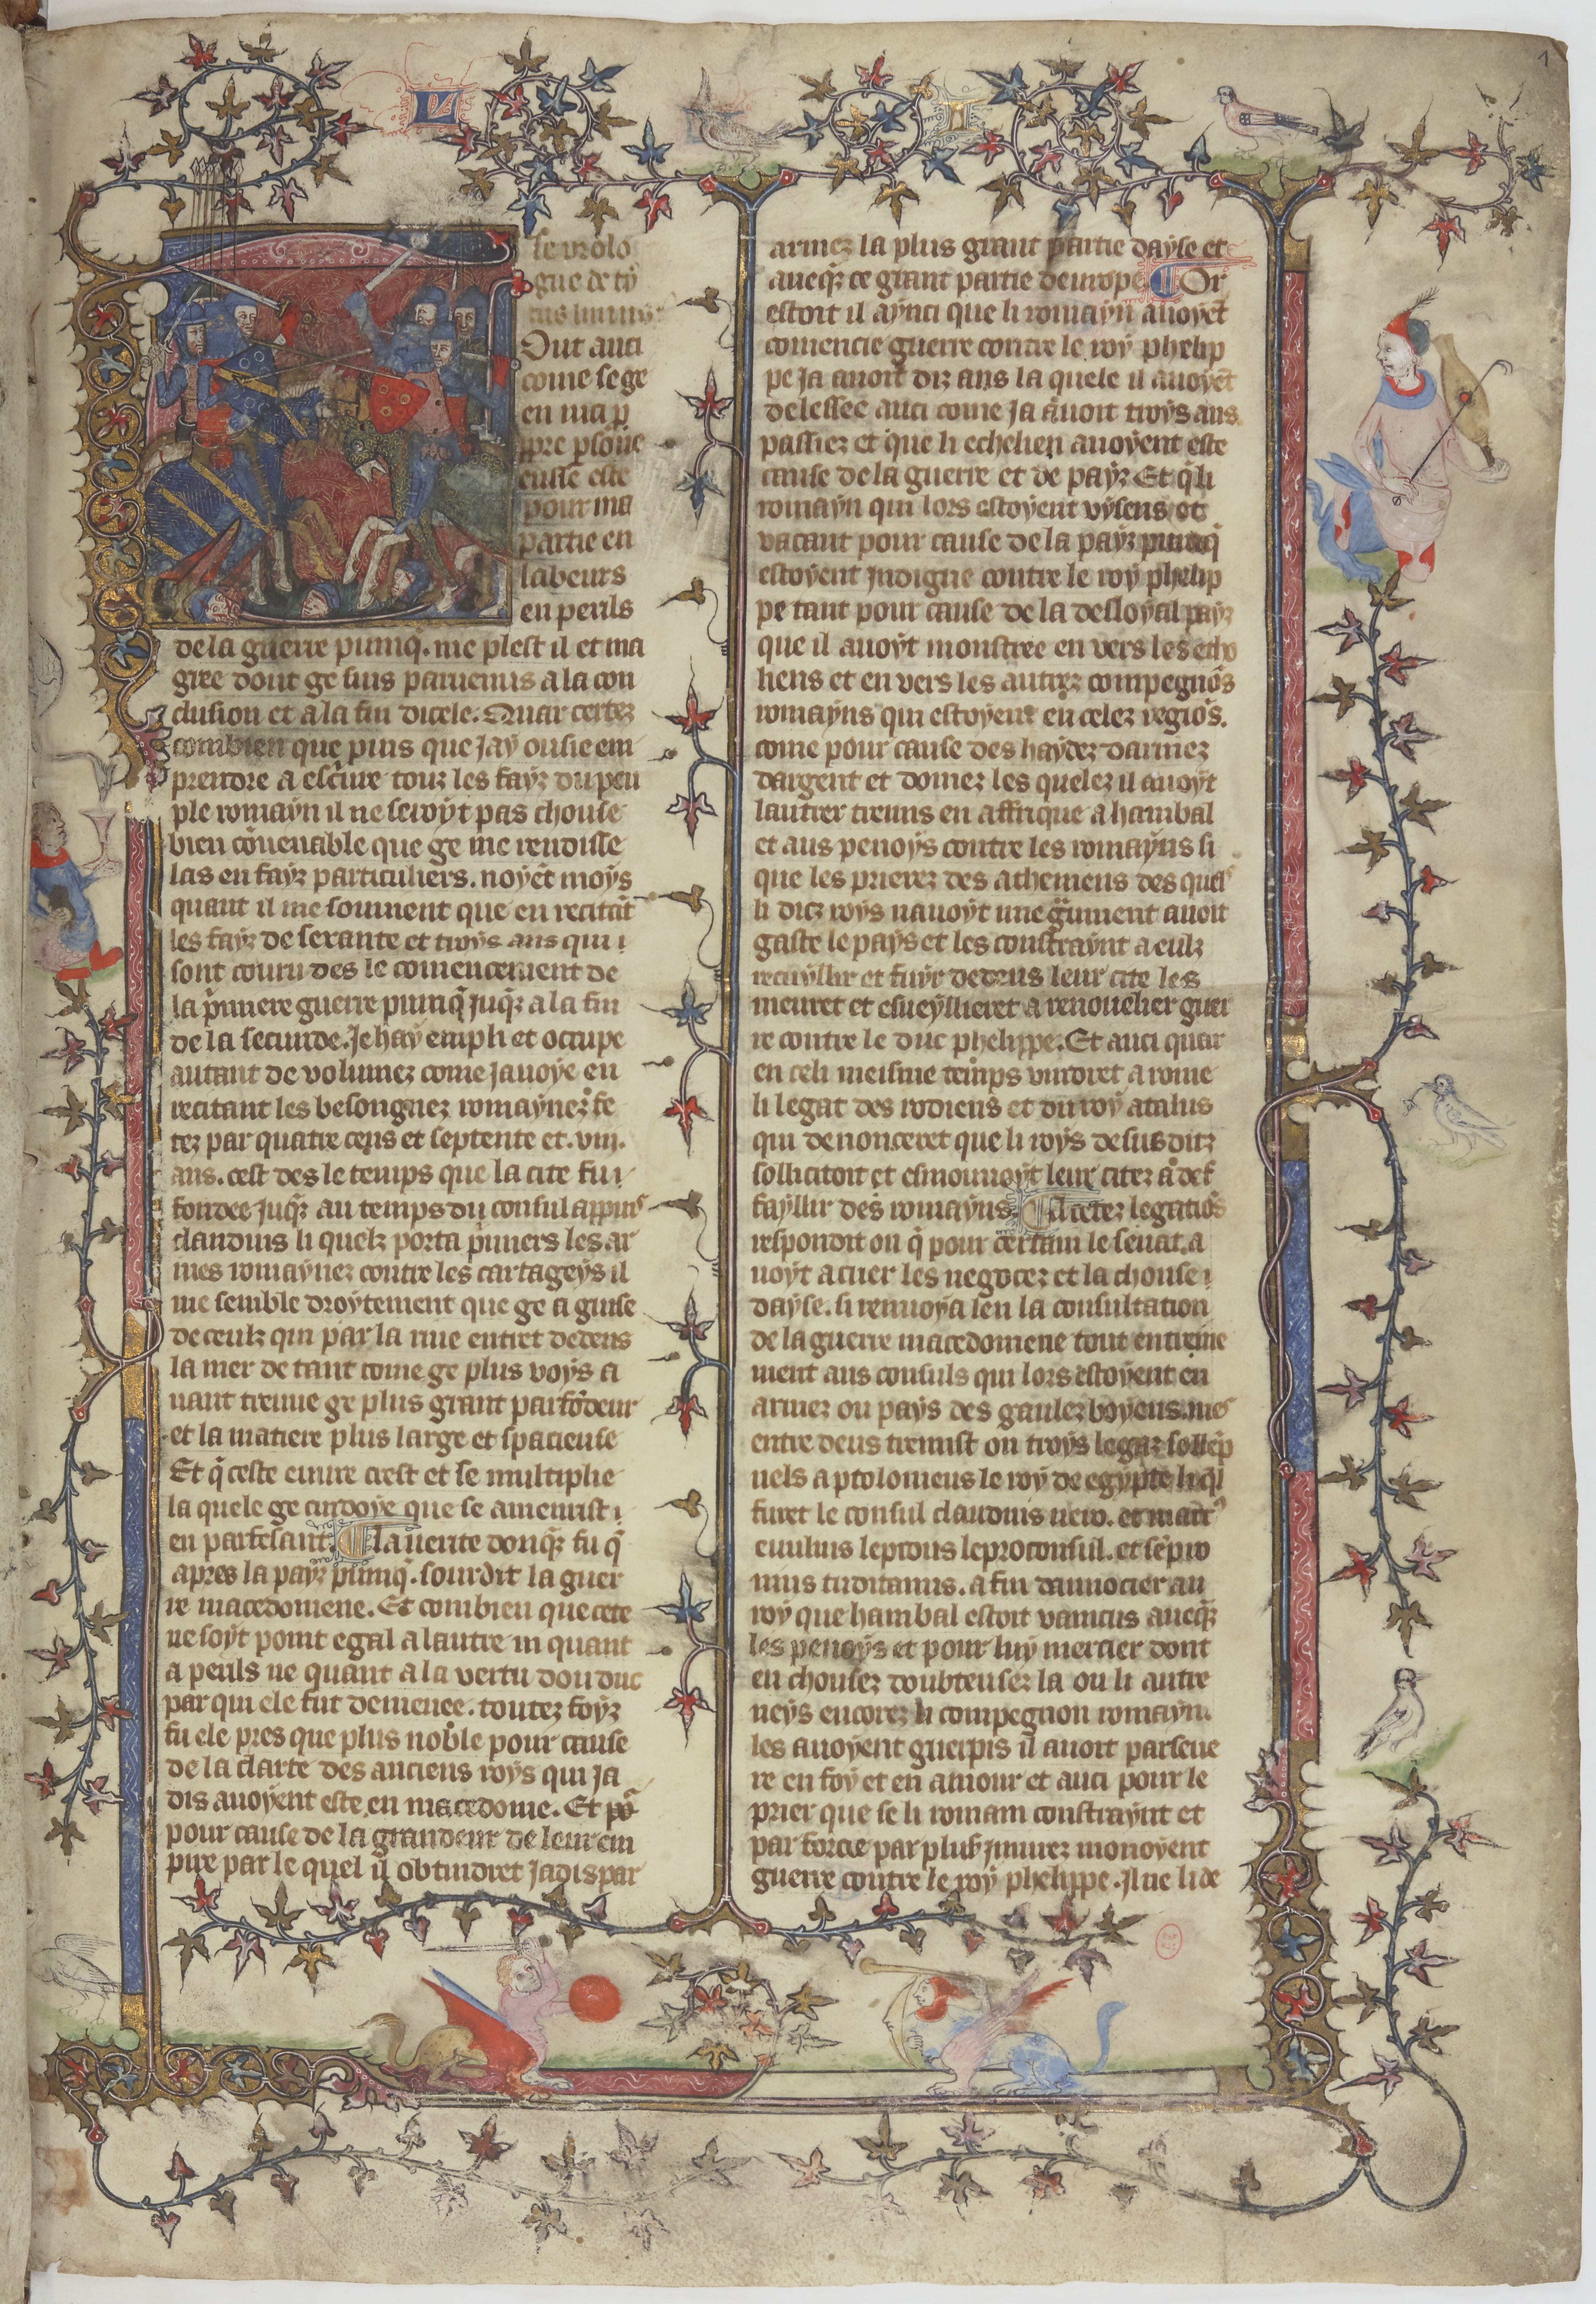 L I
1
le prolo
gue de ty
tus liuius
Out auci
come se ge
en ma p
pre psone
eusse este
pour ma
partie en
labeurs
en perils
de la guerre puniq̃. me plest il et ma
gree dont ge suis paruenus a la con
clusion et a la fin dicele. Quar certez
combien que puis que jay ousie em
prendre a esc̃ure touz les fayz du peu
ple romayn il ne seroyt pas chouse
bien cõuenable que ge me rendisse
las en fayz particuliers. noyẽt moys
quant il me souuient que en recitãt
les fayz de sexante et troys ans qui i
sont couru des le comencement de
la p̃miere guerre puniq̃ juq̃z a la fin
de la secunde. Je hay empli et occupe
autant de volumez come jauoye en
recitant les besongnez romaynez fe
tez par quatre cens et septente et .viii.
ans. cest des le temps que la cite fu i
fondee juq̃z au temps du consul appius
claudius li quelz porta p̃miers les ar
mes romaynez contre les cartageys il
me semble droytement que ge a guise
de ceulz qui par la riue entrẽt dedens
la mer de tant come ge plus voys a
uant treuue ge plus grant parfõdeur
et la matiere plus large et spacieuse
Et q̃ ceste euure crest et se multiplie
la quele ge cuidoye que se amenuist i
en parfesant. ¶ la uente donq̃z fu q̃
apres la payz puniq̃. sourdit la guer
re macedoniene. Et combien que cete
ne soyt point egal a lautre in quant
a perils ne quant a la vertu dou duc
par qui ele fut demenee. toutez foyz
fu ele pres que plus noble pour cause
de la clarte des anciens roys qui ja
dis auoyent este en macedoine. Et
pour cause de la grandeur de leur em
pire par le quel il obtindret jadis par
armez la plus grant partie dayse et
aueq̃z ce grant partie deurope ¶ Or
estoit il aynci que li romayn auoyẽt
comencie guerre contre le roy phelip
pe ja auoit diz ans la quele il auoyẽt
delessee auci come ja auoit troys ans
passiez et que li echelien auoyent este
cause de la guerre et de payz. Et q̃ li
romayn qui lors estoyent vysens et
vacant pour cause de la payz puniq̃
estoyent indigne contre le roy phelip
pe tant pour cause de la desloyal payz
que il auoyt monstree en vers les etho
liens et en vers les autrez compegnõs
romayns qui estoyent en celez regiõs.
come pour cause des haydez darmez
dargent et domez les quelez il auoyt
lautrer tremis en affrique a hanibal
et aus penoys contre les romayns si
que les prierez des atheniens des quelx
li diz roys nauoyt une g̃ument auoit
gaste le pays et les constraynt a eulz
recuyllir et fuyr dedens leur cite les
meuret et esueyllieret a renouelier guer
re contre le duc phelippe. Et auci quar
en celi meisme temps vindret a rome
li legat des rodiens et du roy atalus
qui denonceret que li roys desusditz
sollicitoit et esmouuoyt leur citez a def
fayllir des romayns. ¶ A cetez legatiõs
respondit on q̃ pour certain le senat a
uoyt a cuer les negocez et la chouse i
dayse. si renuoya len la consultation
de la guerre macedoniene tout entieme
ment aus consuls qui lors estoyent en
armez ou pays des gaulez boyens. mes
entre deus tremist on troys legaz sollẽp
nels a ptolomeus le roy de egypte li q̃l
furet le consul claudius nero. et marc9
emilius lepidus le proconsul. et sẽpro
nius tuditanus. a fin dannocier au
roy que hanibal estoit vaincus aueq̃z
les penoys et pour luy mercier dont
en chousez doubteusez la ou li autre
neys encorez li compegnon romayn
les auoyent guerpis il auoit perseue
re en foy et en amour et auci pour le
prier que se li romain constraynt et
par force par plus̃ iniurez monoyent
guerre contre le roy phelippe. Il ne li de